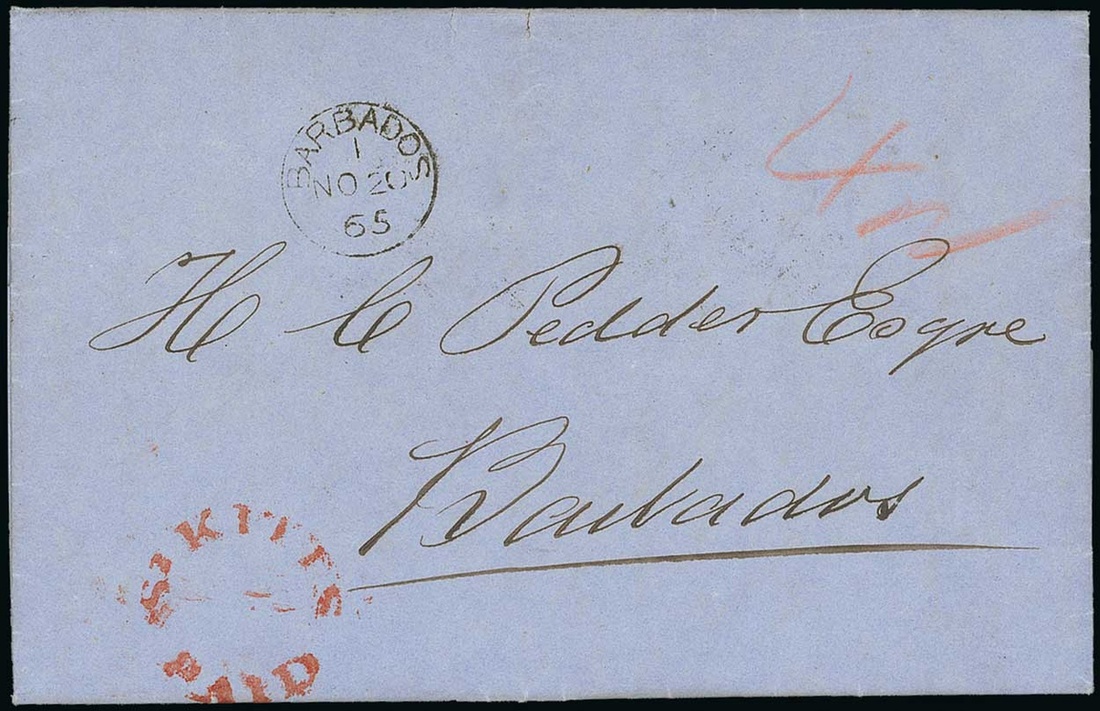 BARBADOS
1
NO 20
65
4
H C Pedder Esqre
Barbados
ST KITTS